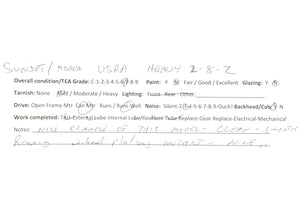 SUNSET/KODAMA USRA HEAVY 2-8-2
Overall condition/TCA Grade: C-1-2-3-4-5-6-7-8-9 Paint: Y N Fair / Good / Excellent Glazing: Y N
Tarnish: None Mild / Moderate / Heavy Lighting: Front Rear Other
Drive: Open Frame Mtr Can Mtr Runs / Runs Well Noise: Silent-2-3-4-5-6-7-8-9-Ouch! Backhead/Cab: Y N
Work completed: Test-External Lube-Internal Lube/Gearbox Tube Replace-Gear Replace-Electrical-Mechanical
Notes: NICE EXAMPLE OF THIS MODEL - CLEAN - SMOOTH
Running - wheel plating INTACT - NICE